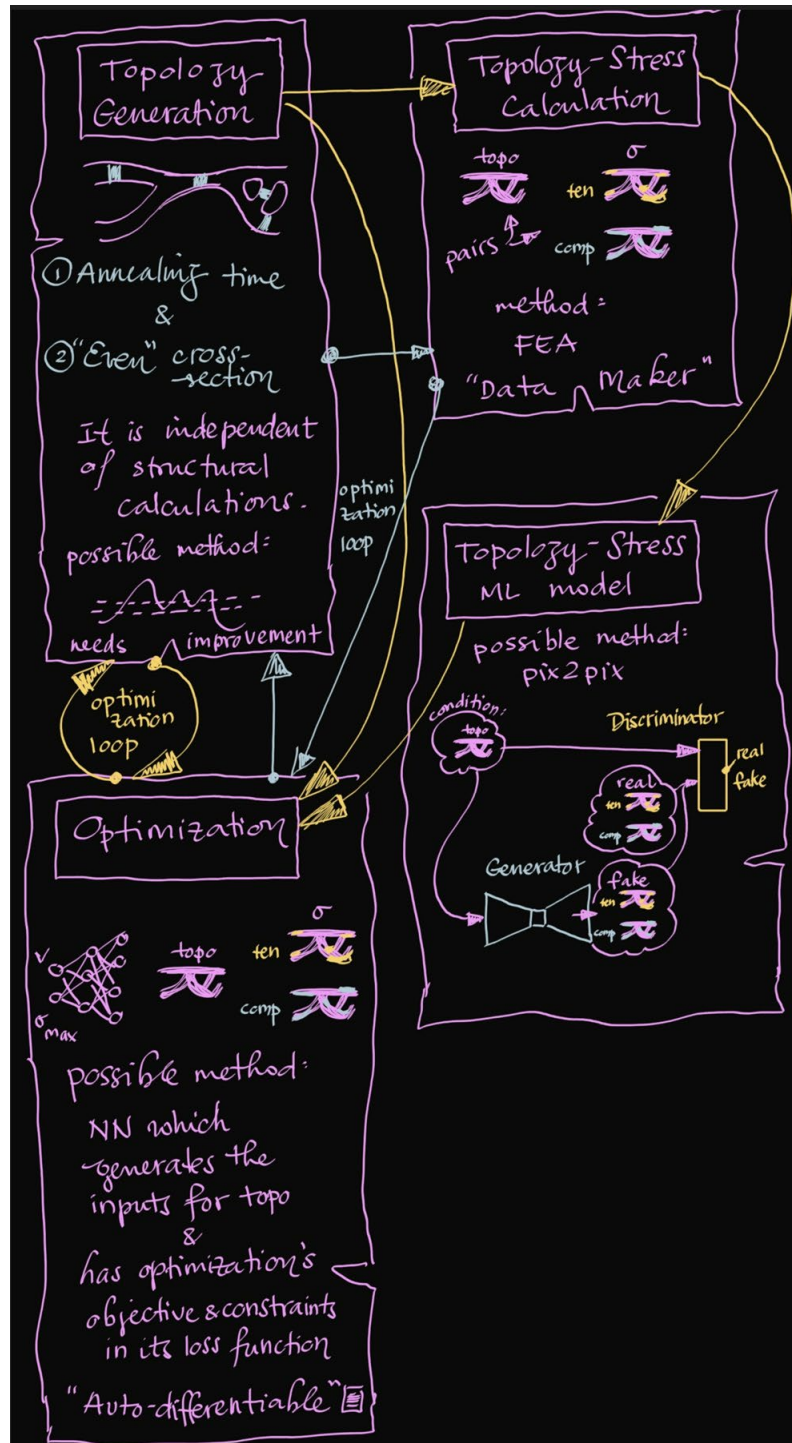 Topology
Generation
① Annealing time
&
② "Even" cross-
-section
It is independent
of structural
calculations.
possible method:
needs improvement
optimi
zation
loop
Topology-Stress
Calculation
topo
σ
ten
pairs
comp
method:
FEA
"Data Maker"
optimi
zation
loop
Topology-Stress
ML model
possible method:
pix2pix
condition:
topo
Discriminator
real
fake
real
ten
comp
Generator
fake
ten
comp
Optimization
topo
σ
ten
comp
σmax
possible method:
NN which
generates the
inputs for topo
&
has optimization's
objective & constraints
in its loss function
"Auto-differentiable"